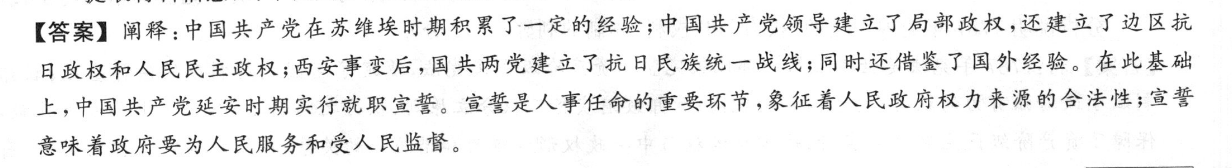 【答案】阐释：中国共产党在苏维埃时期积累了一定的经验；中国共产党领导建立了局部政权，还建立了边区抗
日政权和人民民主政权；西安事变后，国共两党建立了抗日民族统一战线；同时还借鉴了国外经验。在此基础
上，中国共产党延安时期实行就职宣誓。宣誓是人事任命的重要环节，象征着人民政府权力来源的合法性；宣誓
意味着政府要为人民服务和受人民监督。